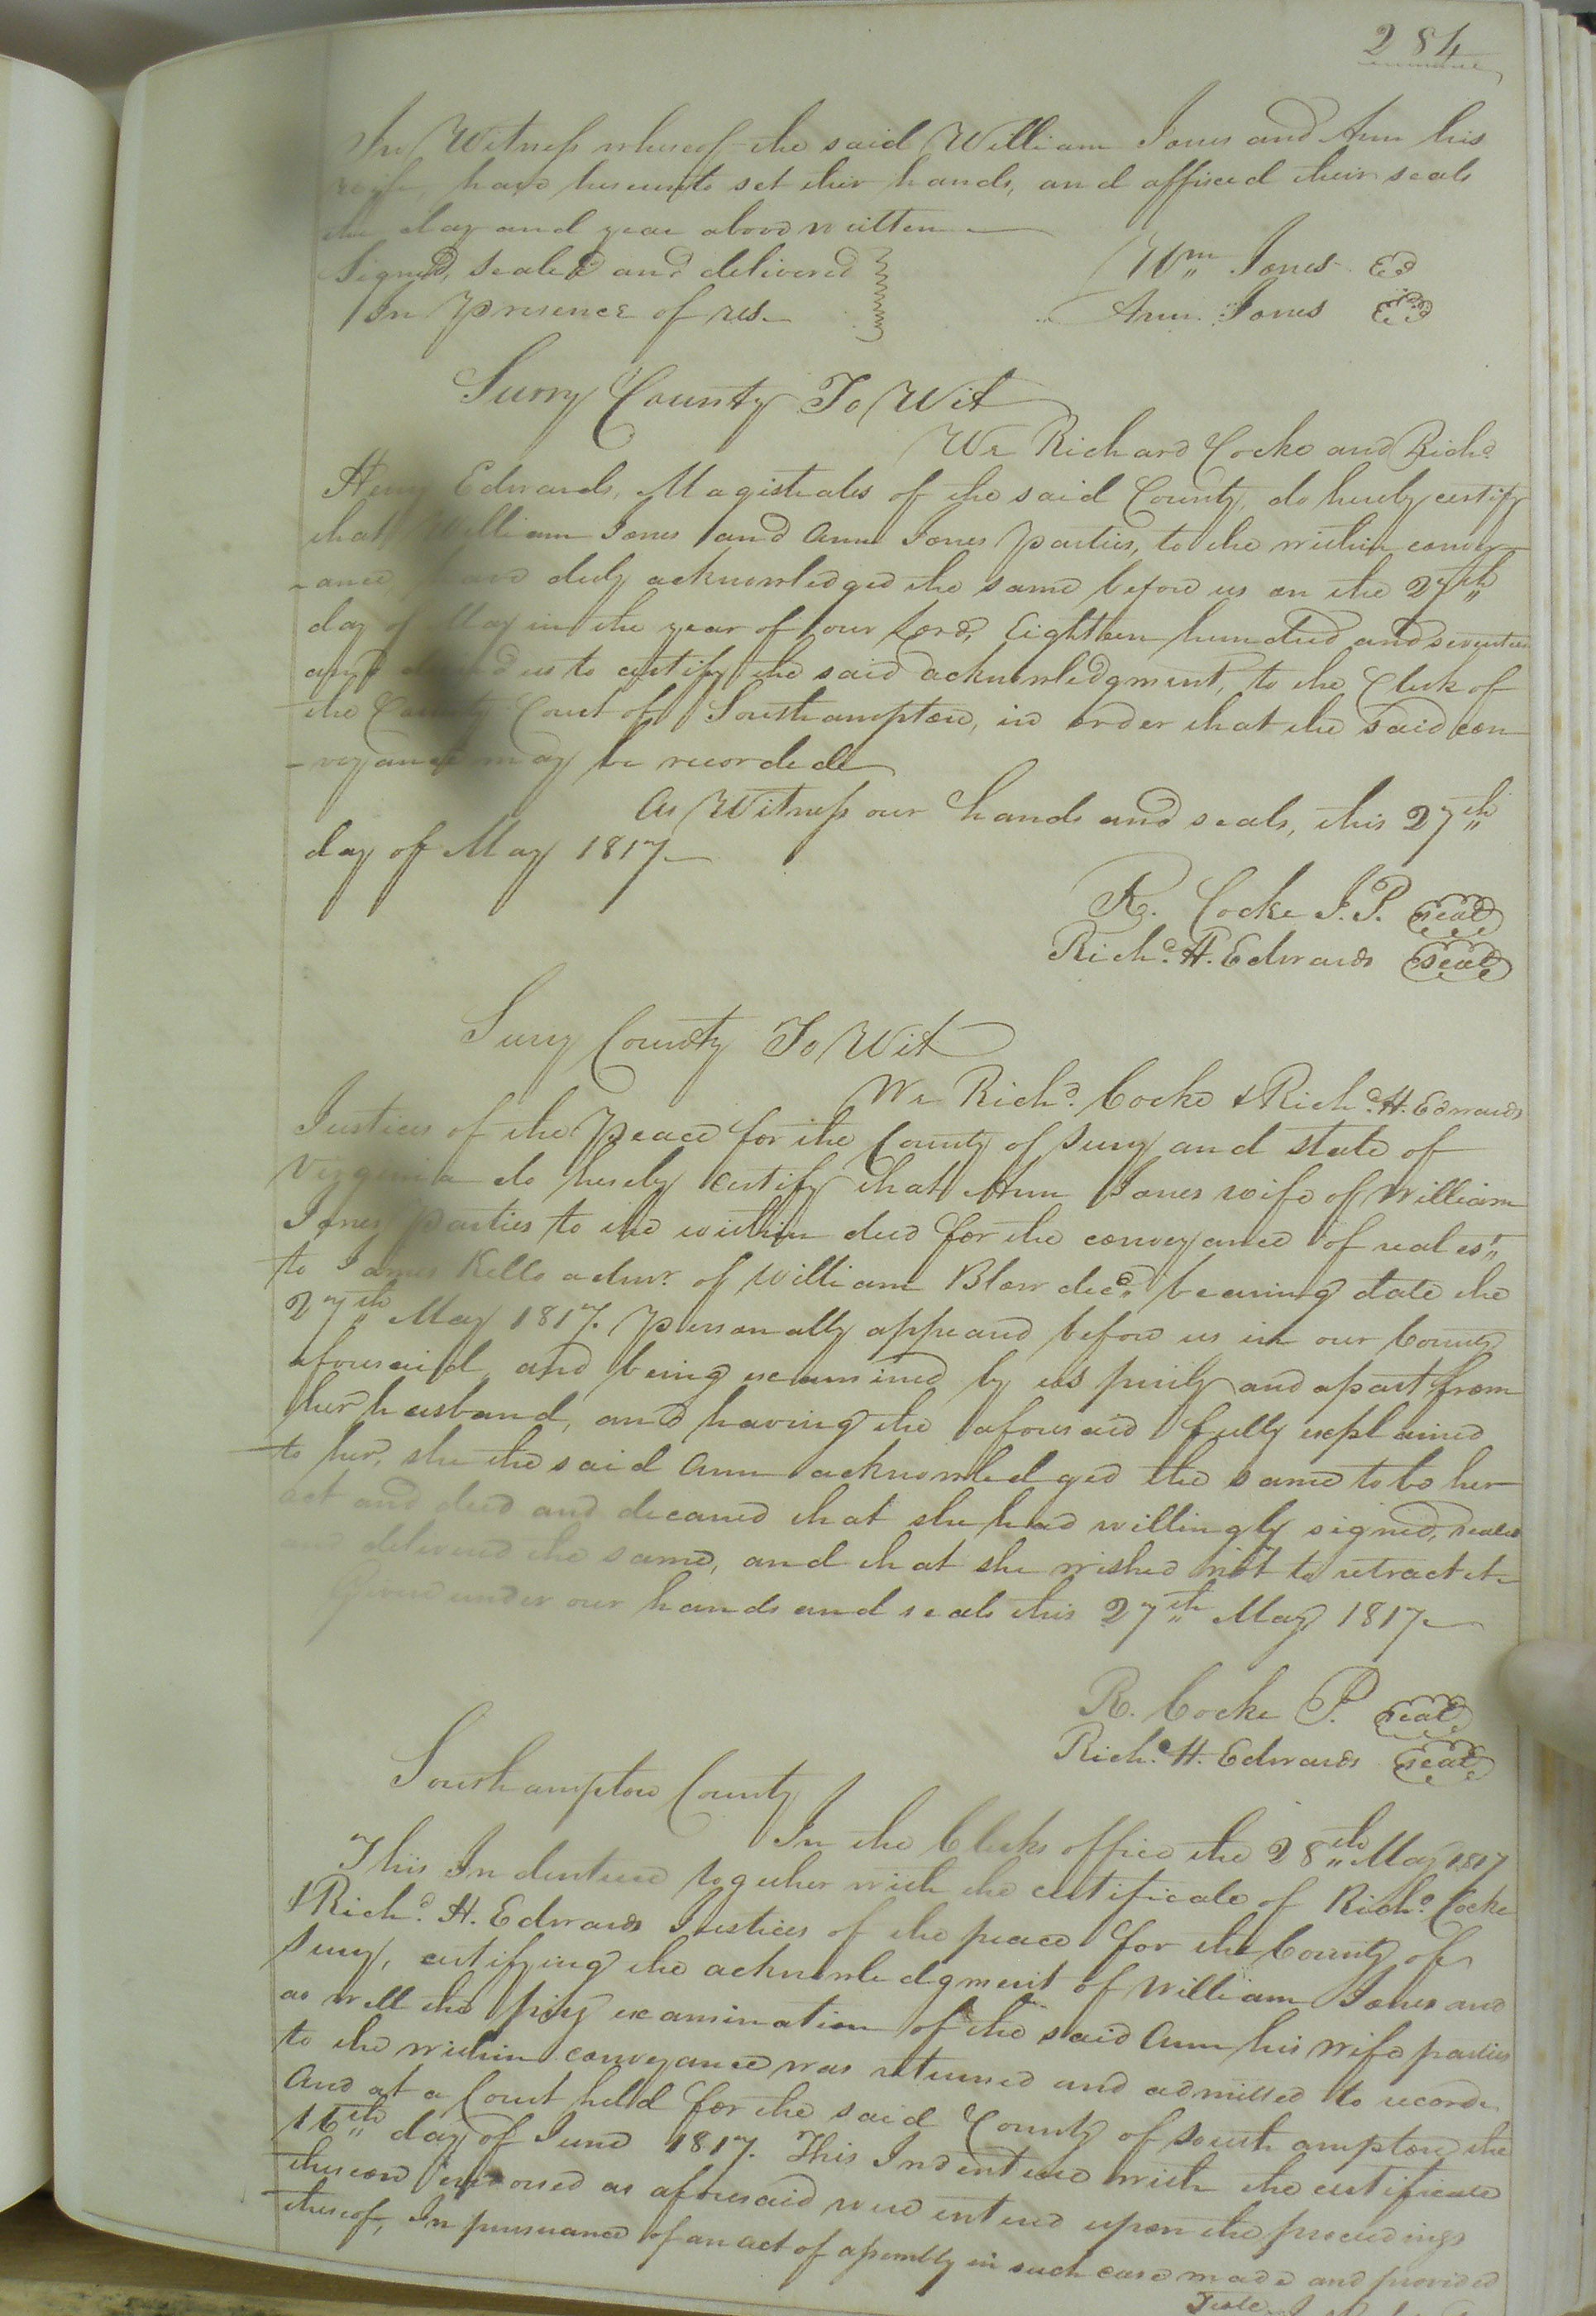 284
In Witness whereof the said William Jones and Ann his
wife, have hereunto set their hands, and affixed their seals
the day and year above written
Signed, sealed and delivered Wm Jones
In presence of us Ann Jones
Surry County To Wit
We Richard Cocke and Richd
Henry Edwards, Magistrates of the said County, do hereby certify
that William Jones and Ann Jones parties, to the within convey-
-ance, have duly acknowledged the same before us on the 27th
day of May in the year of our Lord, Eighteen hundred and seventeen
and desired us to certify the said acknowledgment, to the Clerk of
the County Court of Southampton, in order that the said con-
-veyance may be recorded
As Witness our hands and seals, this 27th
day of May 1817
R. Cocke J.P. seal
Richd. H. Edwards seal
Surry County To Wit
We Richd. Cocke & Richd. H. Edwards
Justices of the Peace for the County of Surry and state of
Virginia do hereby certify that Ann Jones wife of William
Jones parties to the within deed for the conveyance of real est
to James Kello admr. of William Blow decd. bearing date the
27th May 1817. personally appeard before us in our County
aforesaid, and being examined by us privily and apart from
her husband, and having the aforesaid fully explained
to her, she the said Ann acknowledged the same to be her
act and deed and decared that she had willingly signed, sealed
and delivered the same, and that she wished not to retract it
Given under our hands and seals this 27th May 1817
R. Cocke P. seal
Richd. H. Edwards seal
Southampton County
In the Clerks office the 28th May 1817
This Indenture together with the certificate of Richd. Cocke
& Richd. H. Edwards Justices of the peace for the County of
Surry, certifying the acknowledgment of William Jones and
as well the privy examination of the said Ann his wife parties
to the within conveyance was returned and admitted to record
And at a Court held for the said County of Southampton the
16th day of June 1817. This Indenture with the certificate
thereon endorsed as aforesaid were entered upon the proceedings
thereof, In pursuance of an act of assembly in such case made and provided
Teste